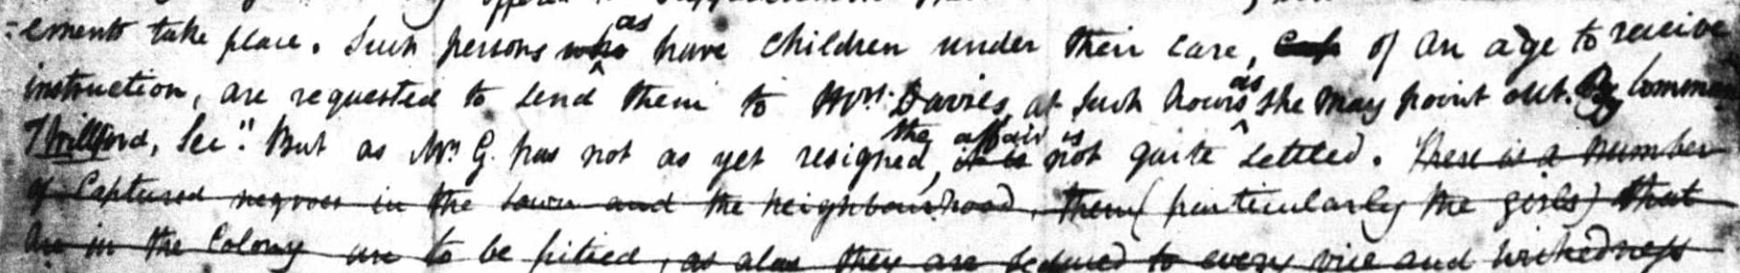 -ements take place. Such persons as have children under their care, of an age to receive
instruction, are requested to send them to Mrs. Davies, at such hours as she may point out. By Comman
Thillford, Sec." But as Mr. G. has not as yet resigned, the affair is not quite settled. There is a number
of Captured negroes in the town and the neighbourhood, them (particularly the girls) that
are in the Colony are to be pitied, as alas they are seduced to every vice and wickedness